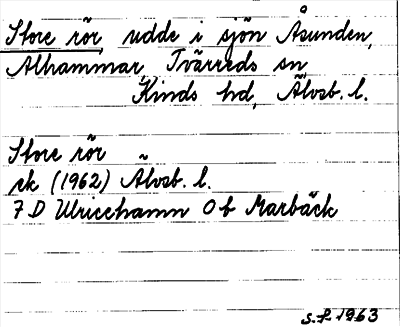 Store rör, udde i sjön Åsunden,
Alhammar, Tvärreds sn
Kinds hd, Älvsb. l.
Store rör
ek (1962) Älvsb. l.
7 D Ulricehamn 0 b Marbäck
1963